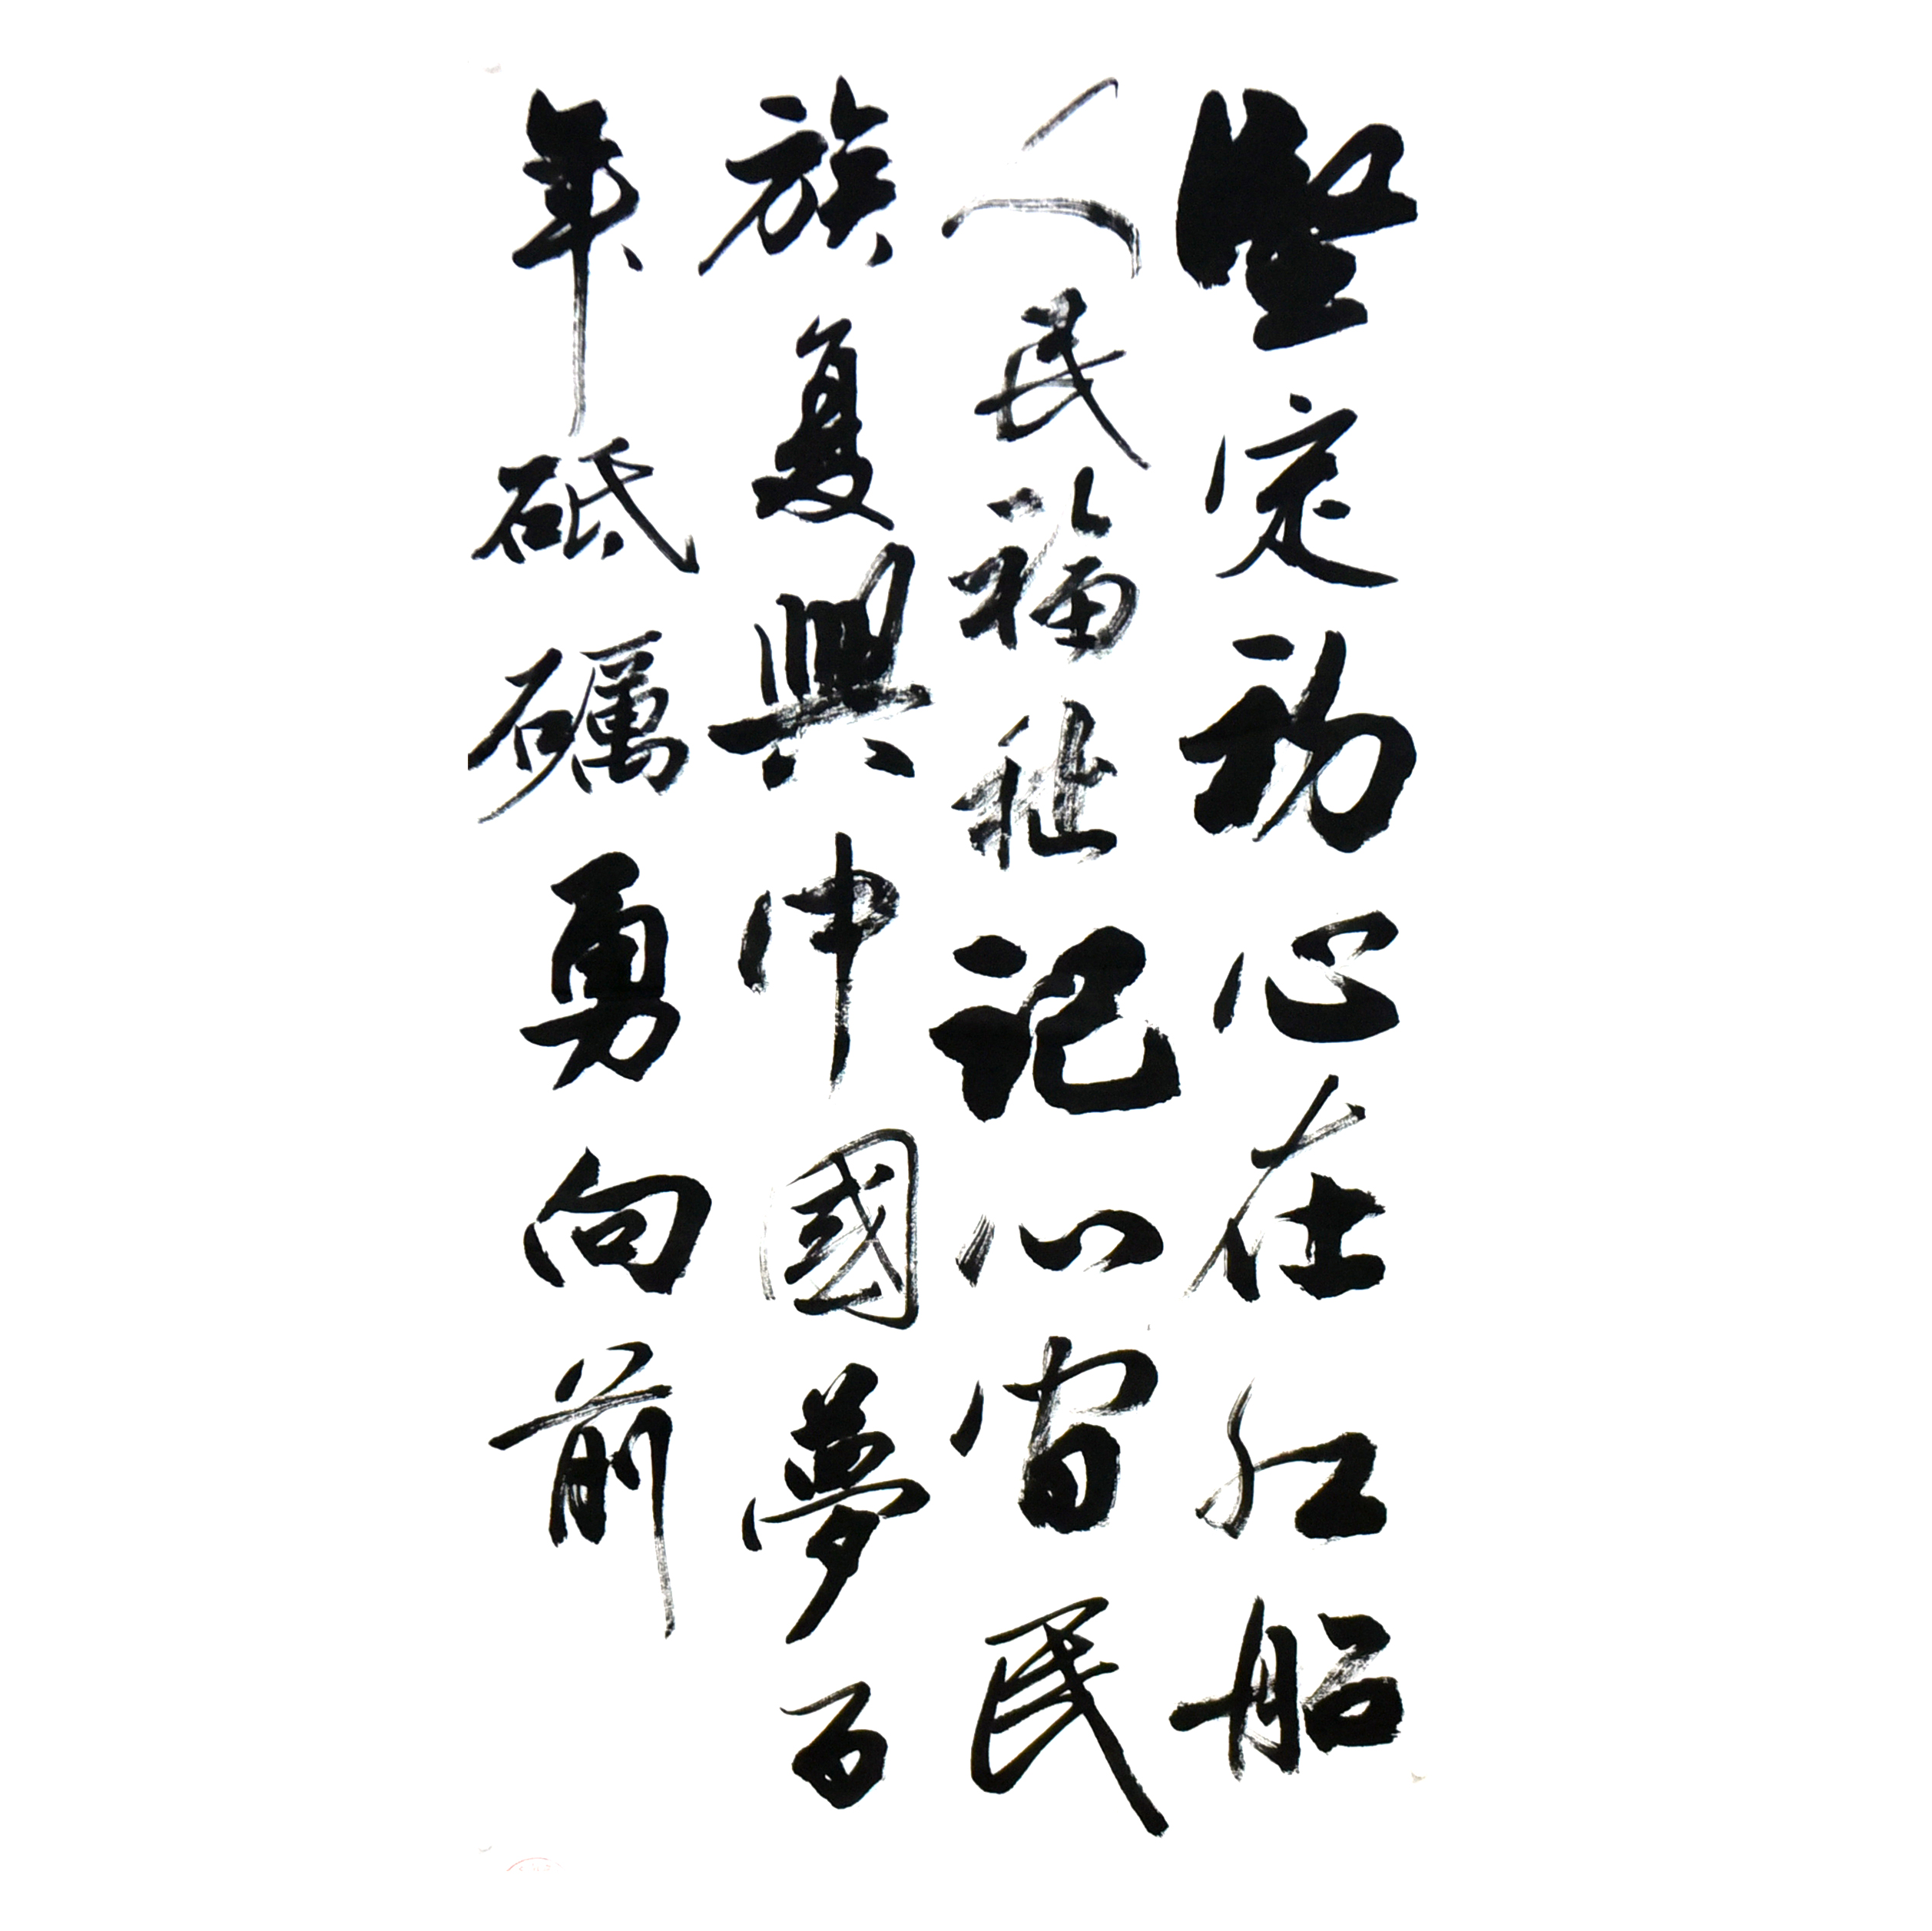 堅定初心在红船
人民福祉记心间民
族复興中國夢百
年砥礪勇向前